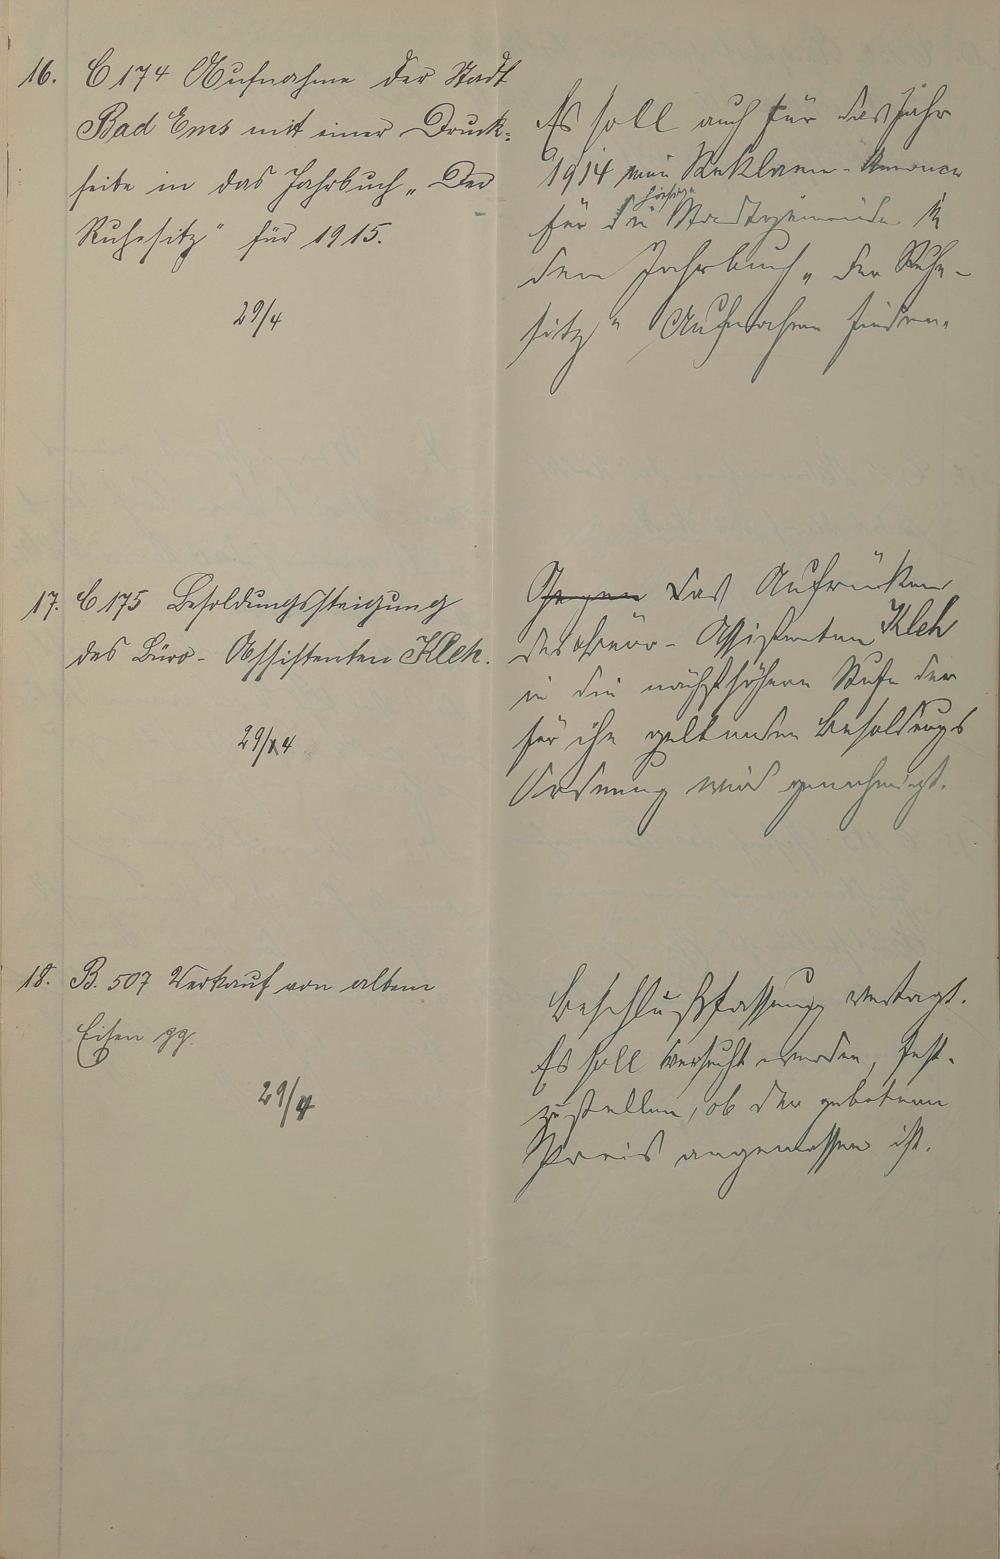 16. C 174 Aufnahme der Stadt
Bad Ems mit einer Druck-
seite in das Jahrbuch „Der
Ruhesitz" für 1915.
29/4
Es soll auch für das Jahr
1914 eine Reklame-Annonce
für die hiesige Stadtgemeinde in
dem Jahrbuch „Der Ruhe-
sitz" Aufnahme finden.
17. C 175 Besoldungssteigung
des Büro-Assistenten Kleh.
29/4
Gegen Das Aufrücken
des Büro-Assistenten Kleh
in die nächsthöhere Stufe der
für ihn geltenden Besoldungs
Ordnung wird genehmigt.
18. B. 507 Verkauf von altem
Eisen pp.
29/4
Beschlußfassung vertagt.
Es soll versucht werden, fest-
zustellen, ob der gebotene
Preis angemessen ist.